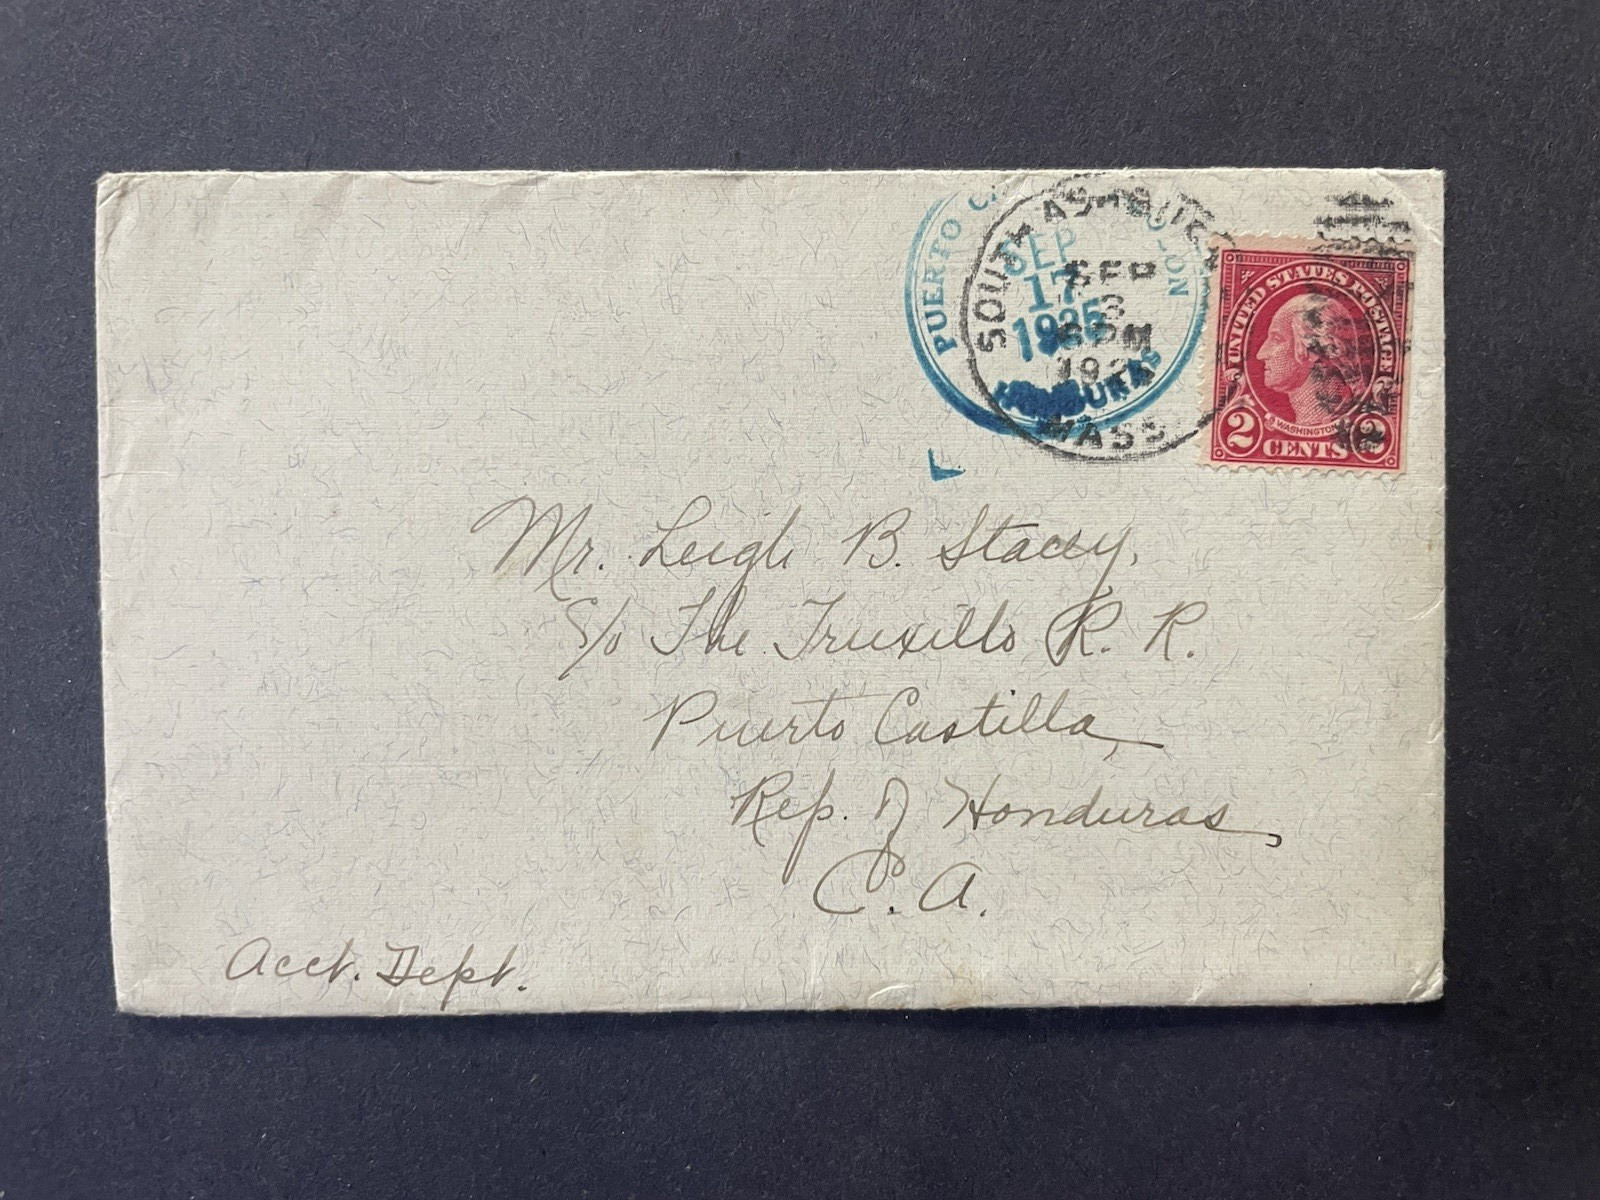 PUERTO
SEP
17
1925
HONDURAS
SOUTH ASHBURN
SEP
3
6 PM
192
MASS.
UNITED STATES POSTAGE
WASHINGTON
2 CENTS 2
Mr. Leigh B. Stacey,
c/o The Truxillo R. R.
Puerto Castilla,
Rep. of Honduras,
C. A.
Acct. Dept.